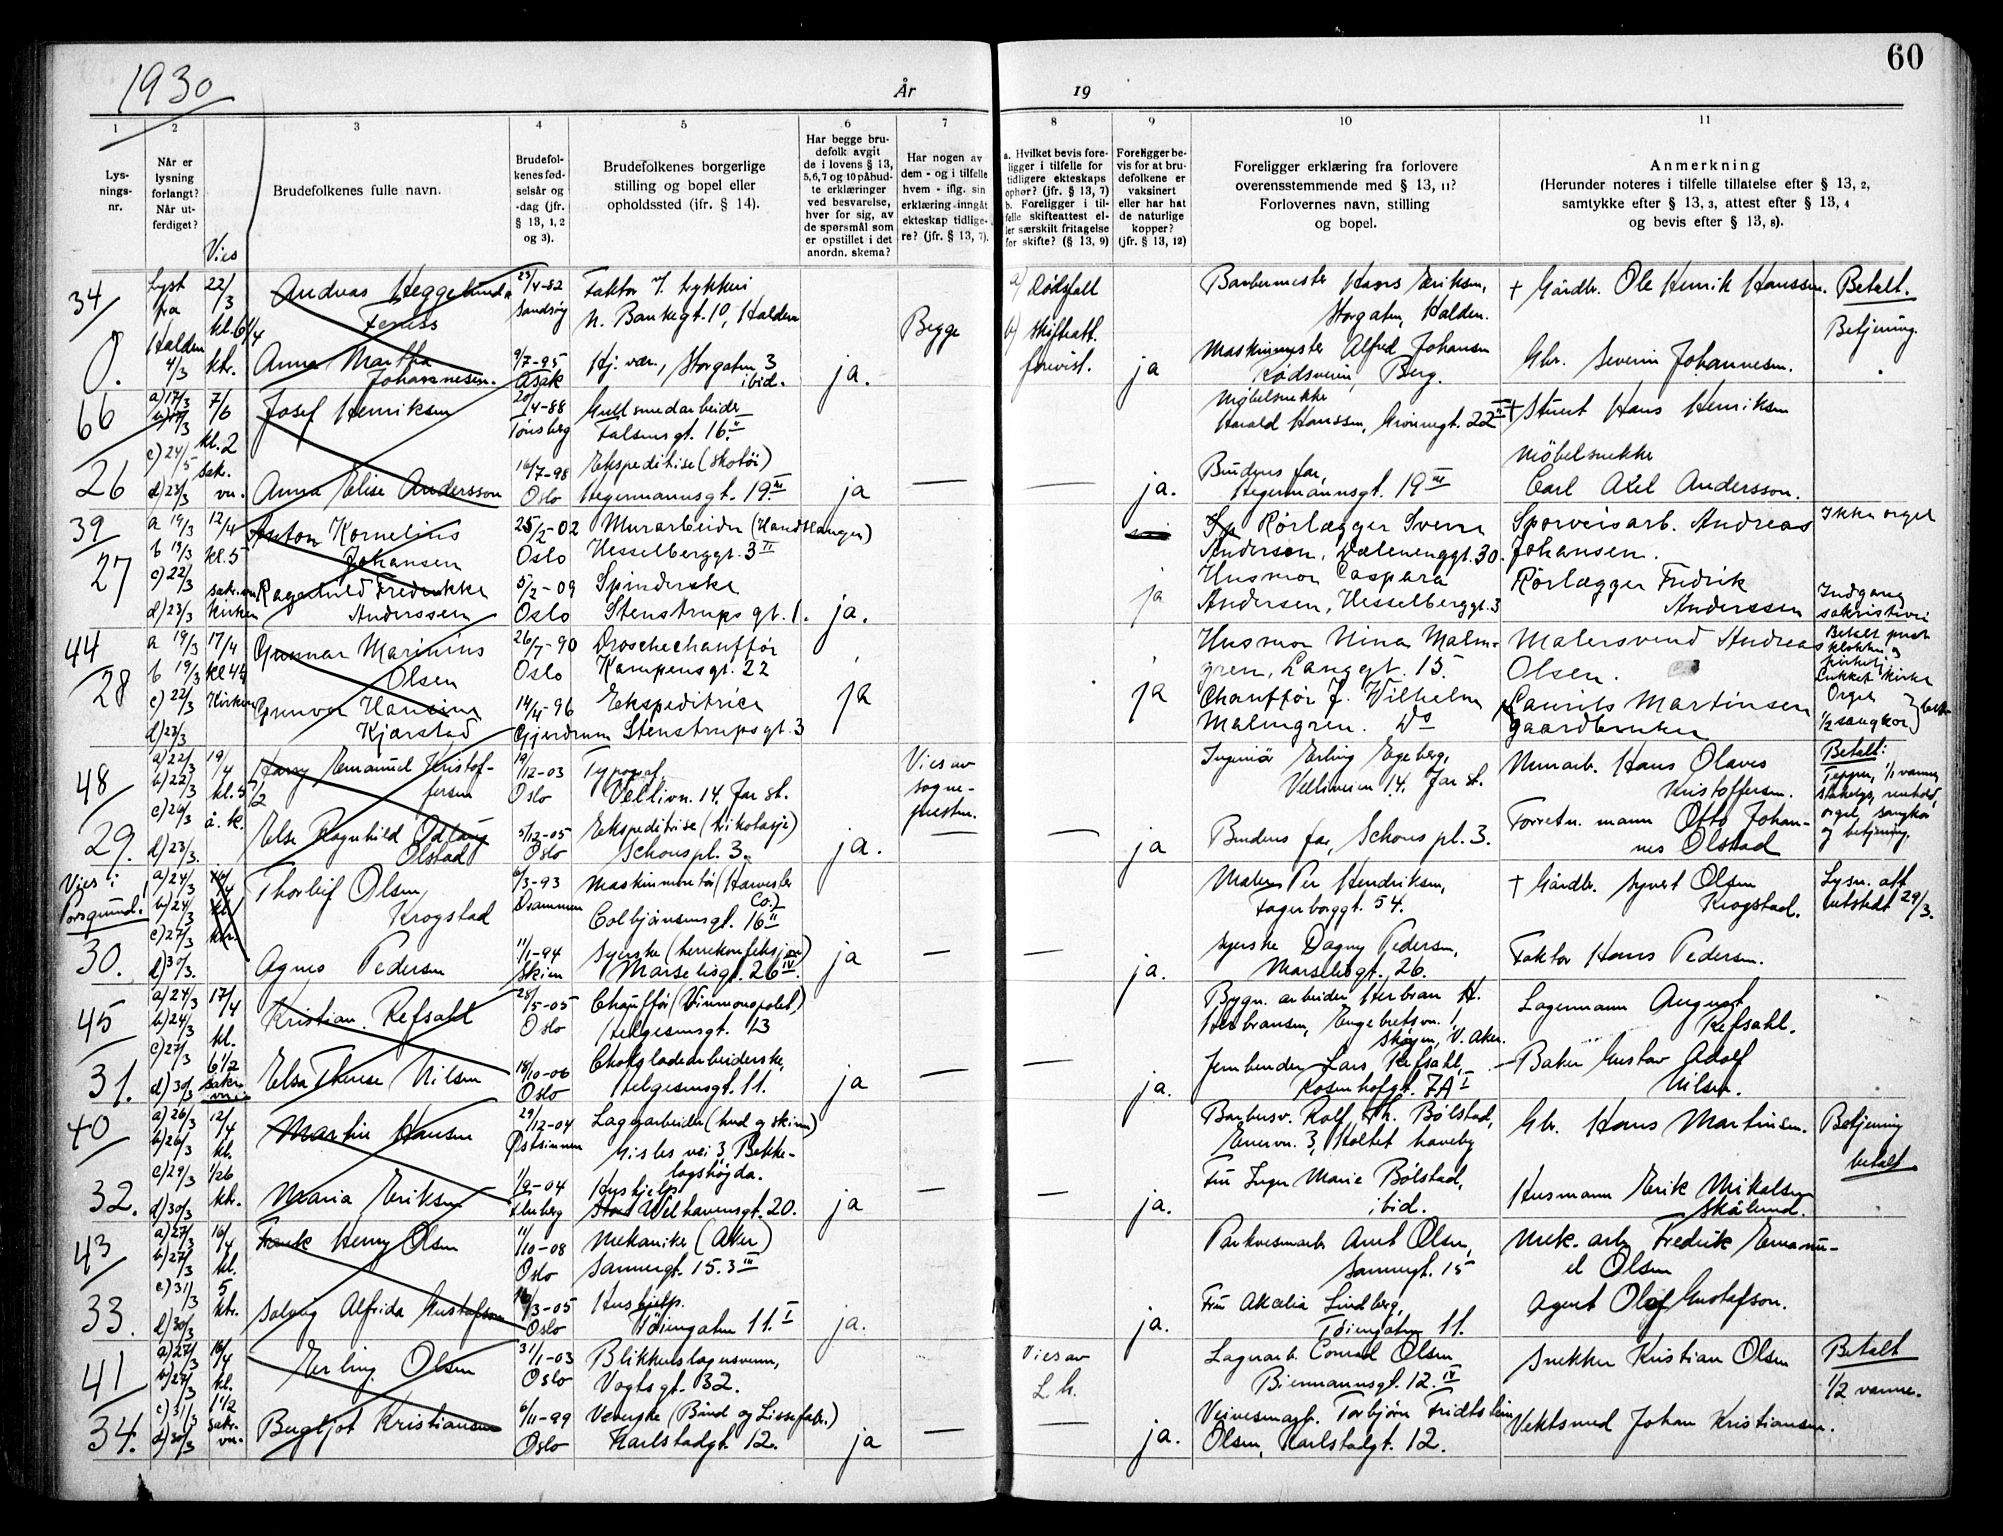 1930
År
19
60
1
2
3
4
5
6
7
8
9
10
11
Lys-
nings-
nr.
Når er
lysning
forlangt?
Når ut-
ferdiget?
Vies
Brudefolkenes fulle navn.
Brudefol-
kenes fød-
selsår og
-dag (jfr.
§ 13, 1, 2
og 3).
Brudefolkenes borgerlige
stilling og bopel eller
opholdssted (ifr. § 14).
Har begge bru-
defolk avgit
de i lovens § 13,
5,6,7 og 10 påbud-
te erklæringer
ved besvarelse,
hver for sig, av
de spørsmål som
er opstillet i det
anordn. skema?
Har nogen av
dem - og i tilfelle
hvem - iflg. sin
erklæring inngåt
ekteskap tidlige-
re? (jfr. § 13, 7).
a. Hvilket bevis fore-
ligger i tilfelle for
tidligere ekteskaps
ophør? (jfr. § 13, 7)
b. Foreligger i til-
felle skifteattest el-
ler særskilt fritagelse
for skifte? (§ 13, 9)
Foreligger be-
vis for at bru-
defolkene er
vaksinert
eller har hat
de naturlige
kopper?
(jfr. § 13, 12)
Foreligger erklæring fra forlovere
overensstemmende med § 13, 11?
Forlovernes navn, stilling
og bopel.
Anmerkning
(Herunder noteres i tilfelle tillatelse efter § 13, 2,
samtykke efter § 13, 3, attest efter § 13, 4
og bevis efter § 13, 8).
34
0.
Lyst
fra
Halden
4/3
22/3
kl. 6 1/4
ktr.
Andreas Heggelund
23/4-82
Sandsøy
Faktor v. trykkeri
N. Bankegt. 10, Halden
Anna Martha
Johannesen.
9/7-95
Asak
Hj. vær., Storgaten 3
ibid.
ja.
Begge
a) Dødsfall
b) skifteatt.
forevist.
ja
Barbermester Hans Eriksen,
Storgaten, Halden.
Maskinmester Alfred Johansen
Rødsveien, Berg.
† Gårdbr. Ole Henrik Hanssen.
Gbr. Severin Johannesen.
Betalt.
Betjening.
66
26
a) 17/3
c) 24/5
d) 23/3
7/6
kl. 2
sak.
vn.
Josef Henriksen
20/4-88
Tønsberg
Gullsmedarbeider
Falsensgt. 16 II
Anna Elise Andersson
16/7-98
Oslo
Ekspeditrise (skotøi)
Hegermannsgt. 19 III
ja
—
—
ja.
Møbelsnekker
Harald Hanssen, Grønnegt. 22 II
Brudens far,
Hegermannsgt. 19 III
† Stuert Hans Henriksen
Møbelsnekker
Carl Axel Andersson.
39
27
a 19/3
b 19/3
c) 22/3
d) 23/3
12/4
kl. 5
kirken
Anton Kornelius
Johansen
25/2-02
Oslo
Murarbeider (Handtlanger)
Hesselberggt. 3 II
Ragnhild Fredrikke
Anderssen
5/2-09
Oslo
Spinderske
Stenstrupsgt. 1.
ja.
ja
Rørlægger Sverre
Andersen, Dælenenggt. 30.
Husmor Caspara
Andersen, Hesselberggt. 3
Sporveisarb. Andreas
Johansen.
Rørlægger Fredrik
Anderssen
Ikke orgel
Indgang
sakristiei
44
28
a 19/3
b 19/3
c) 22/3
d) 23/3
17/4
kl 4 1/2
Kirken
Gunnar Marinius
Olsen
26/7-90
Oslo
Droschechauffør
Kampensgt. 22
Gunvor Hansine
Kjærstad
14/4-96
Gjerdrum
Ekspeditrice
Stenstrupsgt. 3
ja
ja
Husmor Nina Malm-
gren, Langgt. 15.
Chauffør J. Wilhelm
Malmgren. Do
Malersvend Andreas
Olsen.
Laurits Martinsen
gaardbruker
Betalt prest
klokker og
kirketj.
Lukket kirke
Orgel
1/2 sangkor
48
29.
a) 22/3
b) 22/3
c) 26/3
d) 23/3.
19/4
kl. 5 1/2
å. k.
Harry Emanuel Kristof-
fersen
19/12-03
Oslo
Typograf
Vetlivn. 14. Jar st.
Else Ragnhild Odlaug
Olstad
5/12-05
Oslo
Ekspeditrise (trikotasje)
Schouspl. 3.
ja.
Vies av
sogne-
presten.
—
—
ja
Ingeniør Erling Egeberg,
Vetliveien 14. Jar st.
Brudens far, Schouspl. 3.
Murarb. Hans Olaves
Kristoffersen.
Forretn. mann Otto Johan-
nes Olstad
Betalt:
Tepper, 1/1 varme,
stakelys, renhold,
orgel, sangkor
og betjening.
Vies i
Porsgrund!
30.
a) 24/3
b) 24/3
c) 27/3
d) 30/3.
16/4
kl.
ktr.
Thorleif Olsen
Krogstad
6/3-93
Drammen
Maskinmontør (Harvester
Co.)
Colbjørnsensgt. 16 II
Agnes Pedersen
11/1-94
Skien
Syerske (herrekonfeksjon)
Marselisgt. 26 IV.
ja
—
—
ja.
Maler Per Hendriksen,
Fagerborggt. 54.
Syerske Dagny Pedersen,
Marselisgt. 26.
† Gårdbr. Syvert Olsen
Krogstad.
Faktor Hans Pedersen.
Lysn. att.
utstedt 29/3.
45
31.
a) 24/3
b) 24/3
c) 27/3
d) 30/3
17/4
kl.
6 1/2
sakr.
vn.
Kristian Refsahl
28/5-05
Oslo
Chauffør (Vinmonopolet)
Helgesensgt. 13
Elsa Therese Nilsen
18/10-06
Oslo
Chokoladearbeiderske,
Helgesensgt. 11.
ja
—
—
ja.
Bygn. arbeider Herbran H.
Herbransen, Engebretsvn. 1
Skøyen, V. Aker.
Jernbinder Lars Refsahl,
Rosenhofgt. 7A I
Lagermann August
Refsahl.
Baker Gustav Adolf
Nilsen.
40
32.
a) 26/3
b) 26/3
c) 29/3
d) 30/3
12/4
kl.
1/26
ktr.
Martin Hansen
29/12-04
Østsinnen
Lagerarbeider (hud og skinn)
Gisles vei 3, Bekke-
lagshøgda.
Maria Eriksen
1/9-04
Elverg
Hushjelp
Welhavensgt. 20.
ja
—
—
ja.
Barbersv. Rolf Th. Bølstad,
Enervn. 3, Holtet haveby
Fru Inger Marie Bølstad,
ibid.
Gbr. Hans Martinsen.
Husmann Erik Mikalsen
Skålund.
Betjening
betalt
43
33.
a) 27/3
b) 27/3
c) 31/3
d) 30/3
16/4
kl.
5
ktr.
Frank Henry Olsen
11/10-08
Oslo
Mekaniker (Aker)
Sannergt. 15. 3 III
Solveig Alfrida Gustafson
16/3-05
Oslo
Hushjelp.
Tøiengaten 11. I
ja.
ja.
Parkvesenarb. Arnt Olsen,
Sannergt. 15
Fru Akselia Lindberg,
Tøiengaten 11.
Mek. arb. Fredrik Emanu-
el Olsen
Agent Olof Gustafson.
41
34.
a) 27/3
b) 27/3
c) 31/3
d) 30/3
16/4
kl.
1 1/2
sakr.
vn.
Erling Olsen
31/1-03
Oslo
Blikkenslagersvenn,
Vogtsgt. 32.
Bergljot Kristiansen
6/11-99
Oslo
Veverske (Bånd og Lissefabr.)
Karlstadgt. 12.
ja
—
Vies av
L. h.
—
ja.
Lagerarb. Conrad Olsen
Biermannsgt. 12. IV
Veivesenarb. Torbjørn Fridtstein
Olsen, Karlstadgt. 12.
Snekker Kristian Olsen
Vektsmed Johan Kristiansen.
Betalt
1/2 varme.